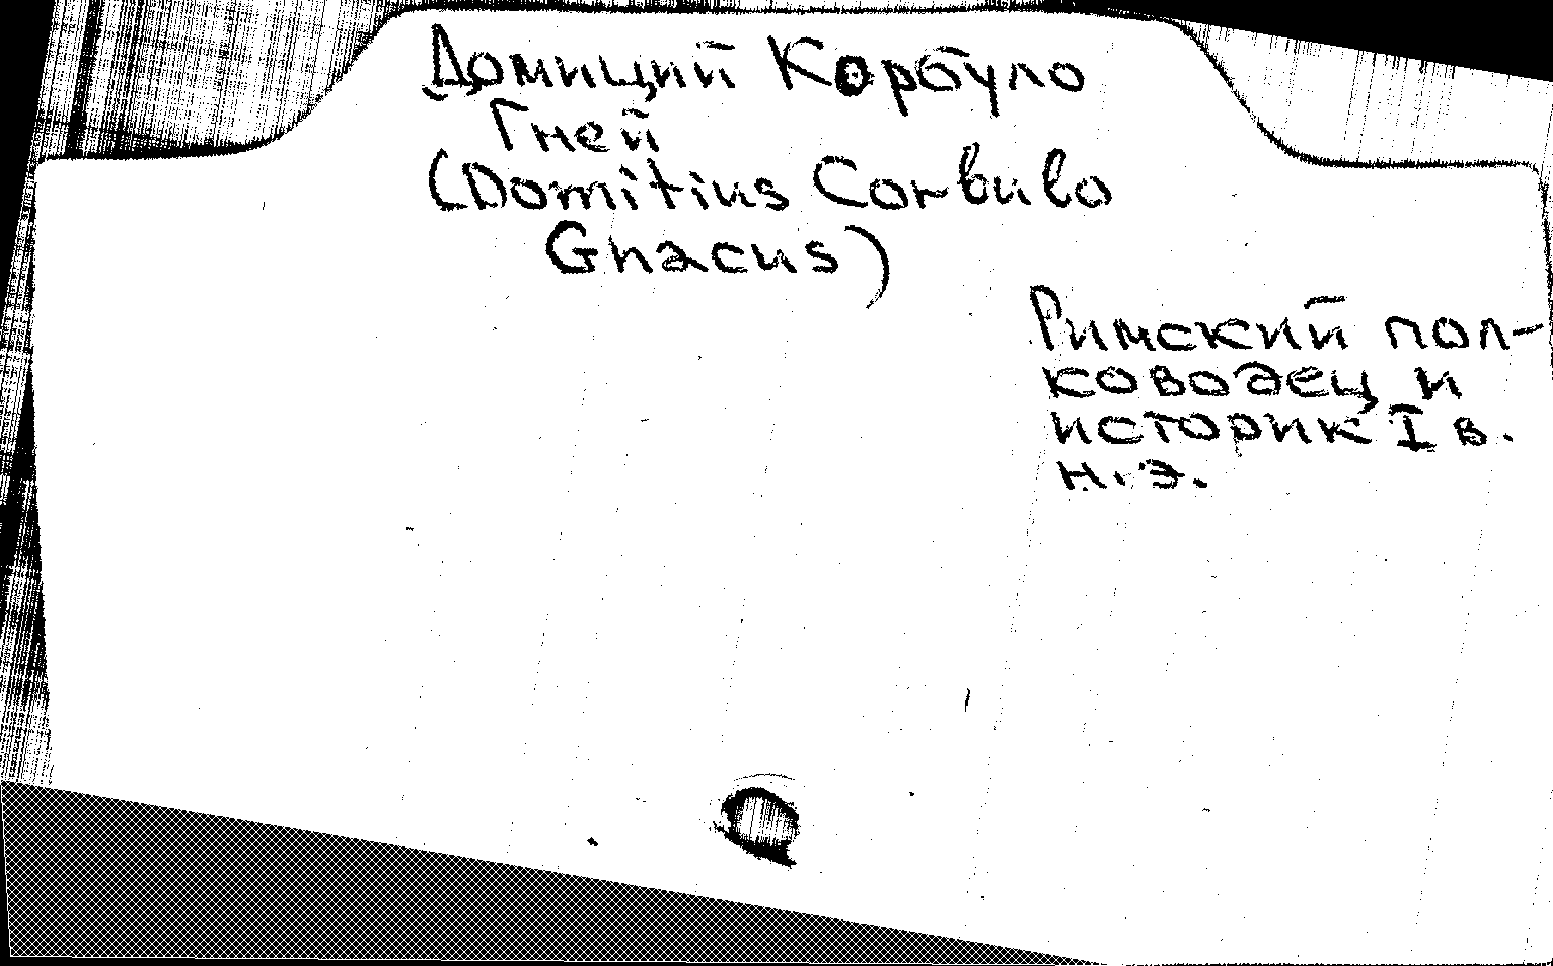 Домиций Корбуло
Гней
(Domitius Corbulo
Gnacus)
Римский пол-
ководец и
историк I в.
н.э.